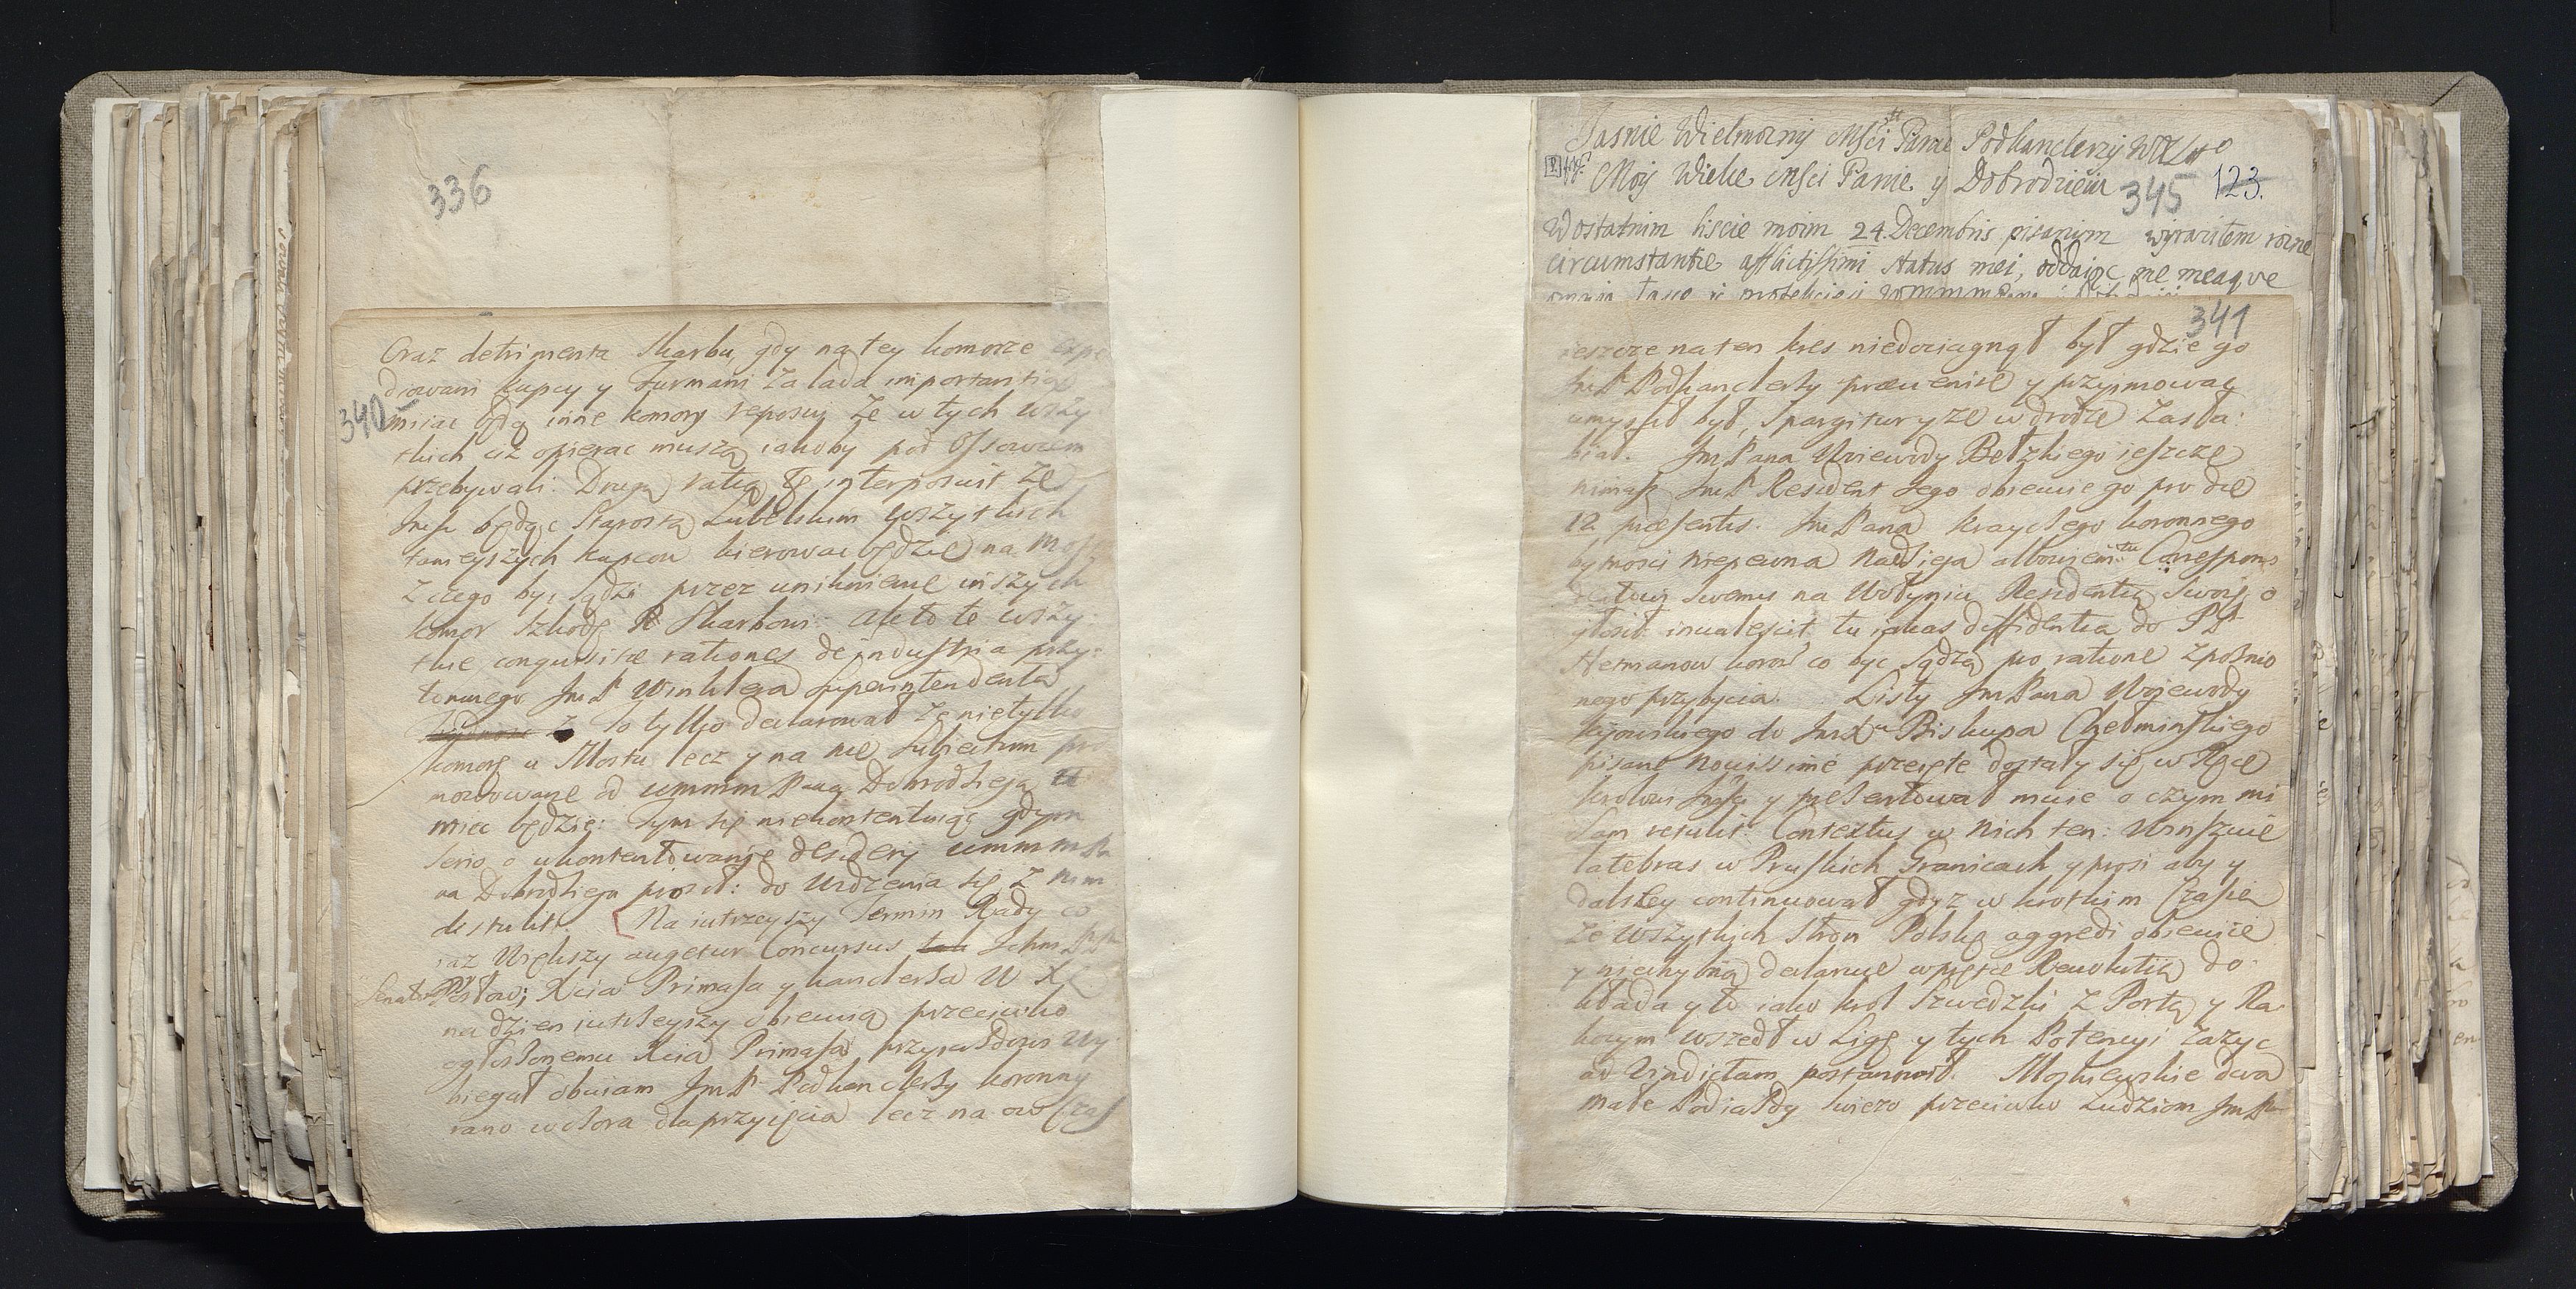 336
340
Oraz detrimenta Skarbu, gdy na tey komorze
diowani kupcy y Furmani za lada importantią
miiac będą inne komory reposuij Ze w tych wszy
tkich iż opierac muszą iakoby pod Ossowcem
przebywali. Drugą ratią tę interposuit Ze
Jmsc będąc Starostą Lubelskim wszytkich
tameyszych kupcow kierowac będzie na
Z czego byc sądzi przez unikniene inszych
komor Szkodę Skarbowi. Ale to te wszy
tkie conquisitae rationes de industria przy:
tomnego JmP Winklera Superintendenta
to tylko declarował Ze nietylko
komorę u Mostu lecz y na nie Subiectum
mowowane od ummm Pana Dobrodzieja
miec będzie: Tym się niekontentuiąc gdym
serio o ukontentowanie desiderij ummm
na Dobrodzieja prosił: do widzenia się Z nim
distulit. Na iutrzeyszy Termin Rady co
raz Większy augetur Concursus
Senator Posłow; Xcia Primasa y kanclerza W X
na dzien iutrzeyszy obiecuią przeciwko
ogłoszonemu Xcia Primasa przyiazdowi Wy
biegał obuiam JmP Podkanclerzy koronny
rano wczora dla przyięcia lecz na ow czas
Jasnie Wielmozny Msci Panie Podkanclerzy
Moy Wielce Msci Panie y Dobrodzieiu
345 123.
W ostatnim liscie moim 24. Decembris pisanym wyraziłem rozne
circumstantie afflictissimi status mei, oddaiąc me meaque
341
ieszcze na ten kres niedociągnął był gdzie go
JmP Podkanclerzy praevenire y przyimowac
umyslił był, Spargitur y ze w drodze Zasła:
biał. JmPana Woiewody Bełzkiego ieszcze
nimasz JmP Resident Jego obiecuie go pro die
12 praesentis. JmPana Krayczego koronnego
bytnosci niepewna Nadzieja albowiem tu Correspon
Swemu na Wołyniu Residentią Swoię o
głosił: invalescit tu iakas diffidentia do PP
Hetmanow koron co byc sądzą pro ratione Zpoznio
nego przybycia. Listy JmPana Wojewody
kijowskiego do JmX Biskupa Chełminskiego
pisane novissime przeięte dostały się w Ręce
krolowi Jmsci y praesentował mnie o czym mi
Sam retulit. Contextus w Nich ten: Winszuie
latebras w Pruskich Granicach y prosi aby y
daley continuował gdyz w krotkim Czasie
Ze Wszytkich Stron Polskę aggredi obiecuie
y niechybną declaruie w Rewolutią do
kłada y to iako krol Szwedzki Z Portą y Ra
koczym wszedł w Ligę y tych Potencyi Zazyc
ad Vindictam postanowił. Moskiewskie dwa
małe Podiazdy swiezo przeciwko Ludziom JmP